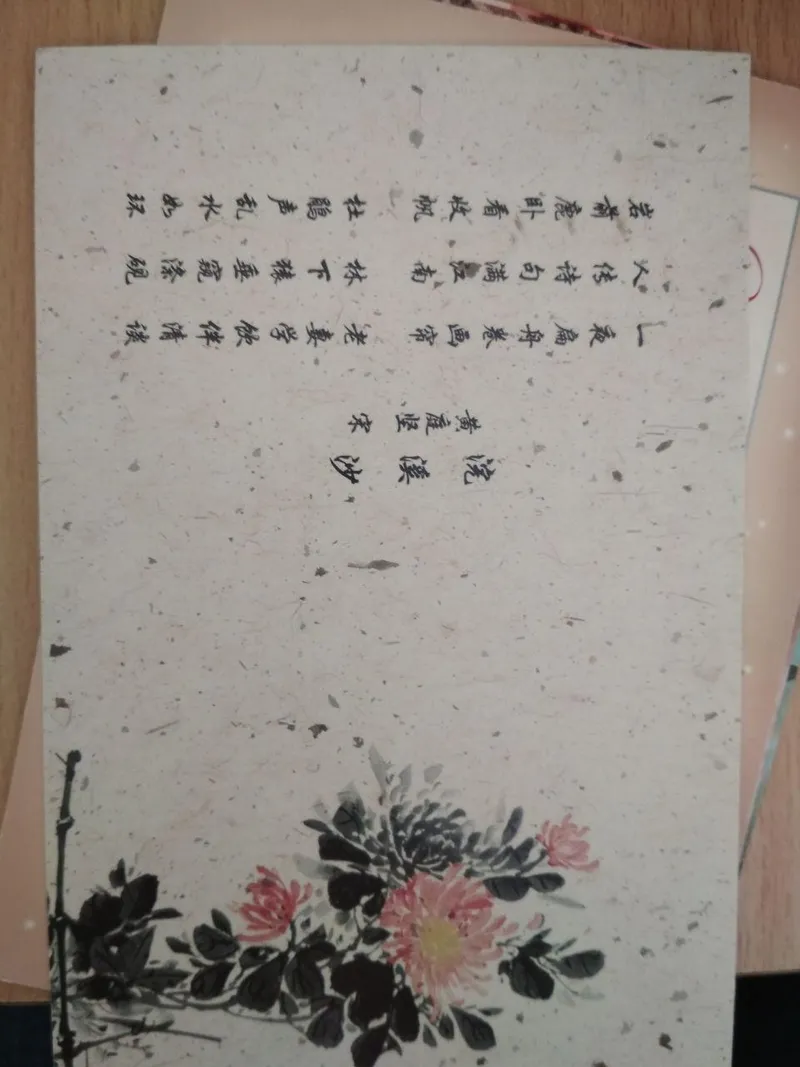 浣溪沙
黄庭坚 宋
一夜扁舟卷画帘 老妻学饮伴清谈
人传诗句满江南 林下猿垂窥涤砚
岩前鹿卧看收帆 杜鹃声乱水如环